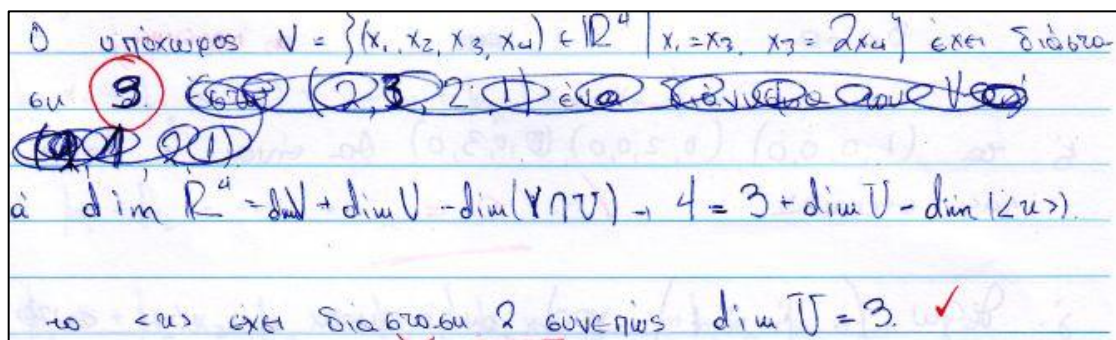 Ο υπόχωρος V = {(x₁, x₂, x₃, x₄) ∈ ℝ⁴ | x₁=x₃, x₃ = 2x₄} έχει διάστα
ση 3.
ά dim ℝ⁴ = dimV + dim U - dim(V∩U) → 4 = 3 + dim U - dim(<u>).
το <u> έχει διάσταση 2 συνεπώς dim U = 3. ✓